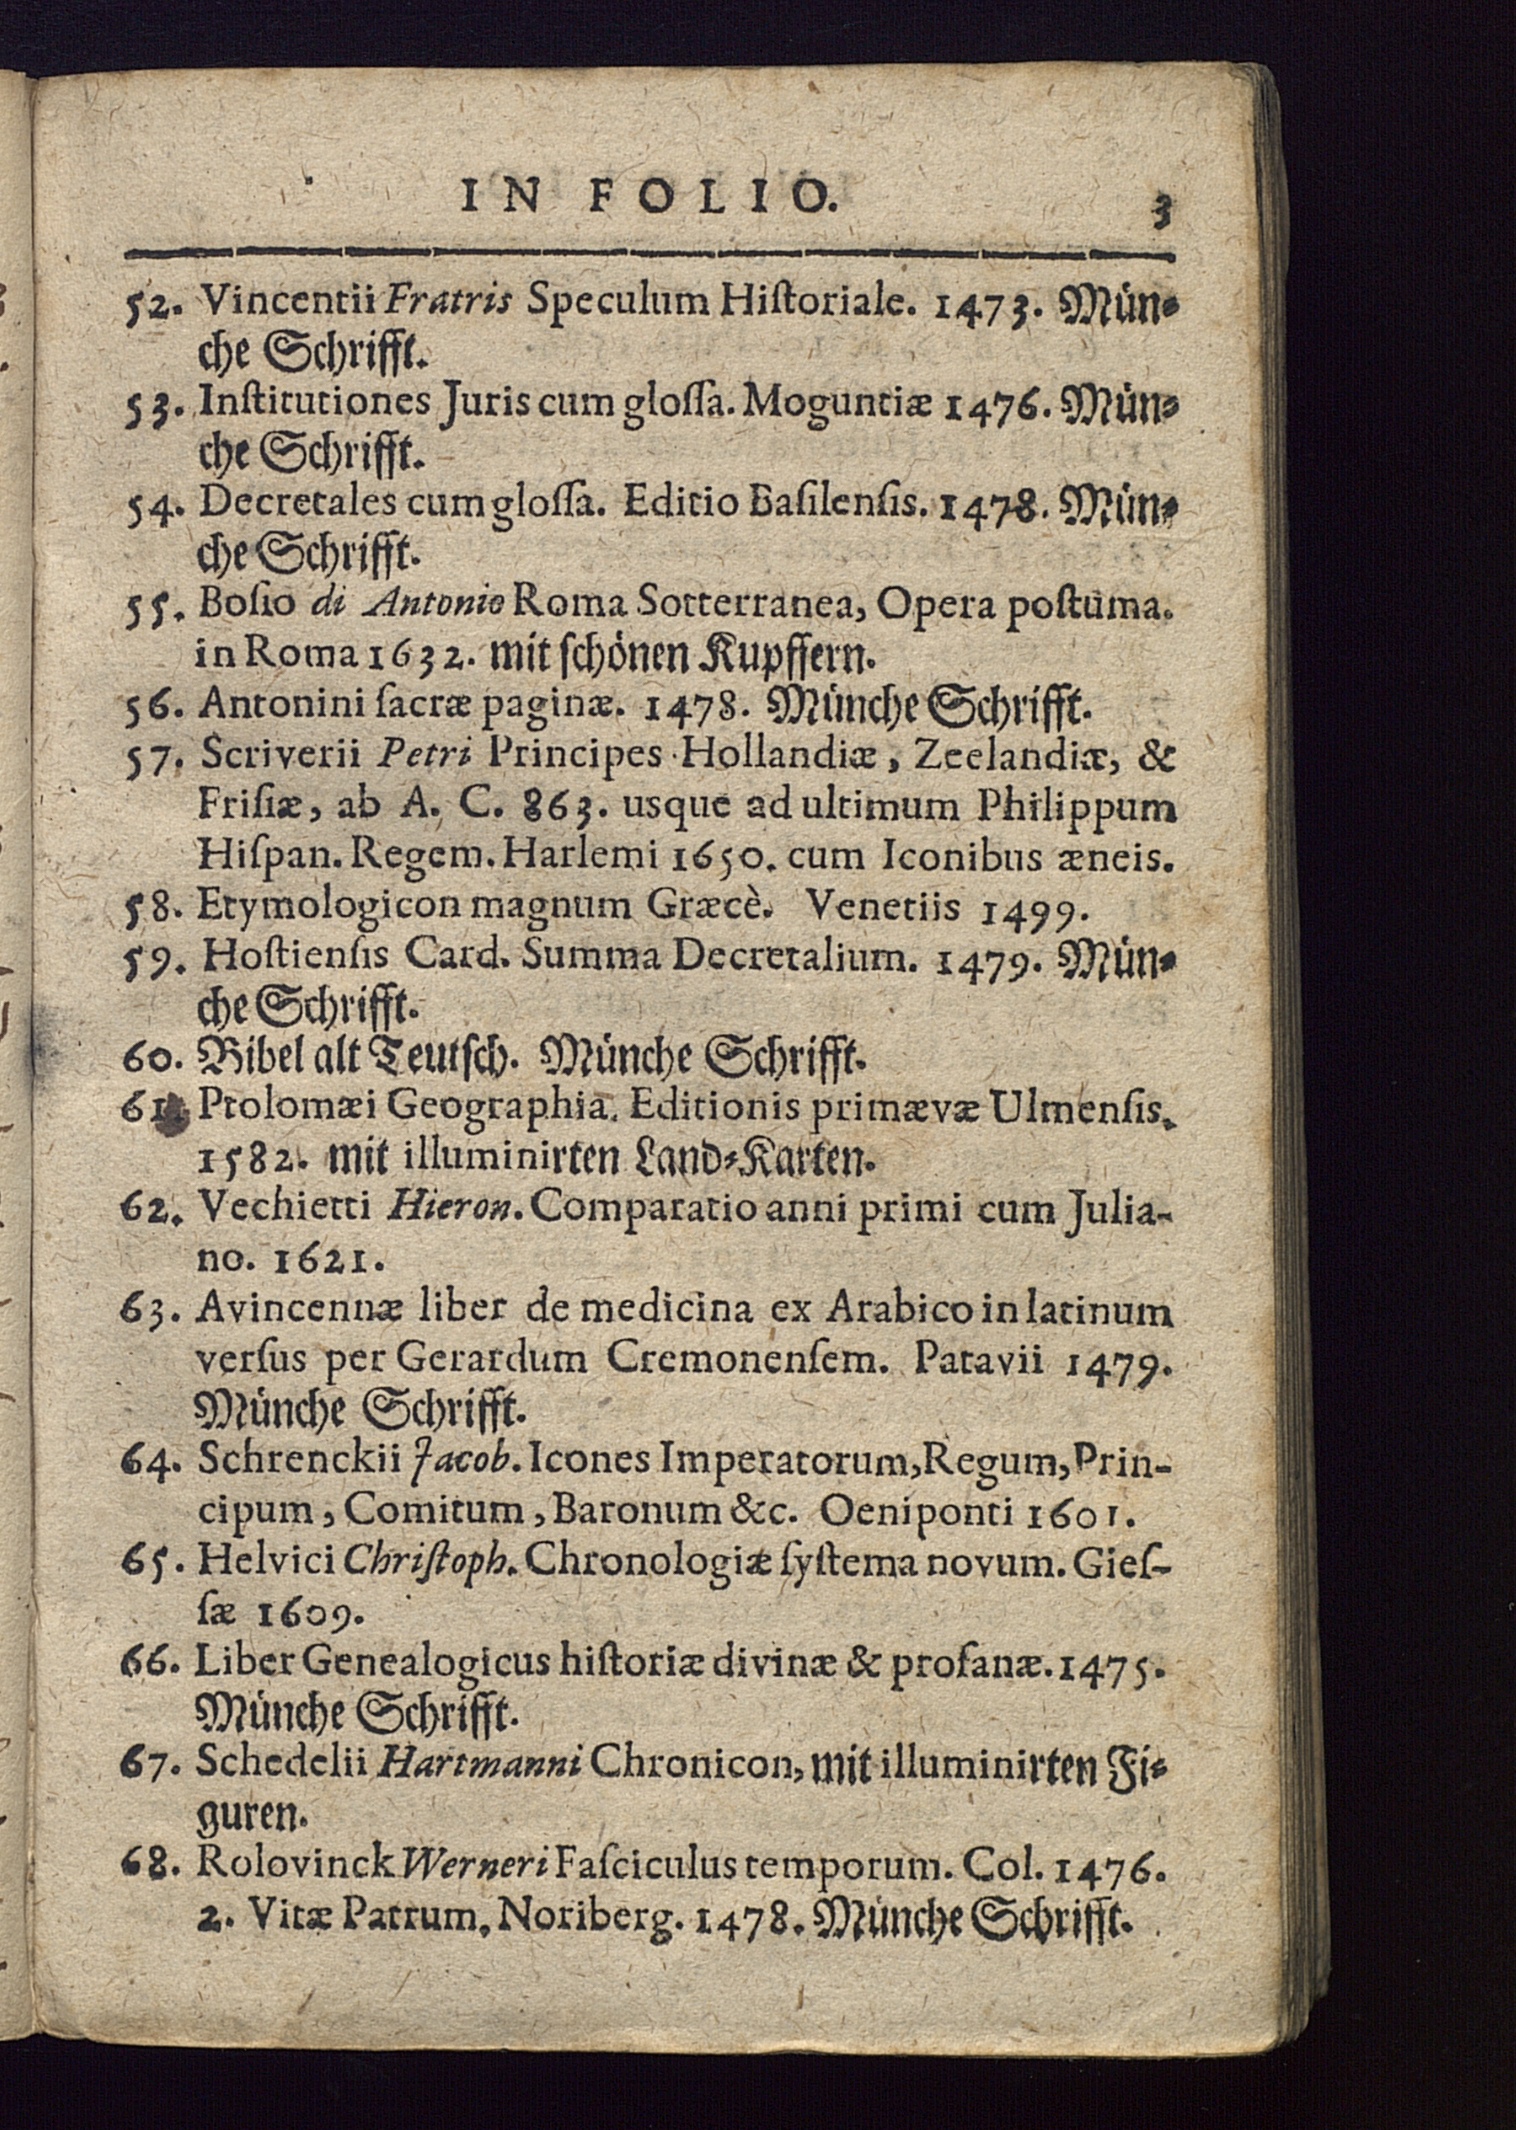 IN FOLIO. 3
52. Vincentii Fratris Speculum Hiſtoriale. 1473. Mün⸗
che Schrifft.
53. Inſtitutiones Juris cum gloſſa. Moguntiæ 1476. Mün⸗
che Schrifft.
54. Decretales cum gloſſa. Editio Baſilenſis. 1478. Mün⸗
che Schrifft.
55. Boſio di Antonio Roma Sotterranea, Opera poſtuma.
in Roma 1632. mit ſchönen Kupffern.
56. Antonini ſacræ paginæ. 1478. Münche Schrifft.
57. Scriverii Petri Principes Hollandiæ, Zeelandiæ, &
Friſiæ, ab A. C. 863. usque ad ultimum Philippum
Hiſpan. Regem. Harlemi 1650. cum Iconibus æneis.
58. Etymologicon magnum Græcè. Venetiis 1499.
59. Hoſtienſis Card. Summa Decretalium. 1479. Mün⸗
che Schrifft.
60. Bibel alt Teutſch. Münche Schrifft.
61. Ptolomæi Geographia. Editionis primævæ Ulmenſis.
1582. mit illuminirten Land⸗Karten.
62. Vechietti Hieron. Comparatio anni primi cum Julia-
no. 1621.
63. Avincennæ liber de medicina ex Arabico in latinum
verſus per Gerardum Cremonenſem. Patavii 1479.
Münche Schrifft.
64. Schrenckii Jacob. Icones Imperatorum, Regum, Prin-
cipum, Comitum, Baronum &c. Oeniponti 1601.
65. Helvici Chriſtoph. Chronologiæ ſyſtema novum. Gieſ-
ſæ 1609.
66. Liber Genealogicus hiſtoriæ divinæ & profanæ. 1475.
Münche Schrifft.
67. Schedelii Hartmanni Chronicon, mit illuminirten Fi⸗
guren.
68. Rolovinck Werneri Faſciculus temporum. Col. 1476.
2. Vitæ Patrum. Noriberg. 1478. Münche Schrifft.